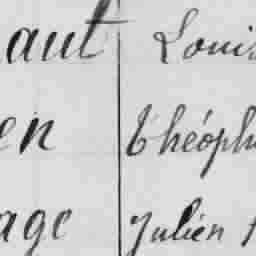 aut Louis
en Théoph
age Julien